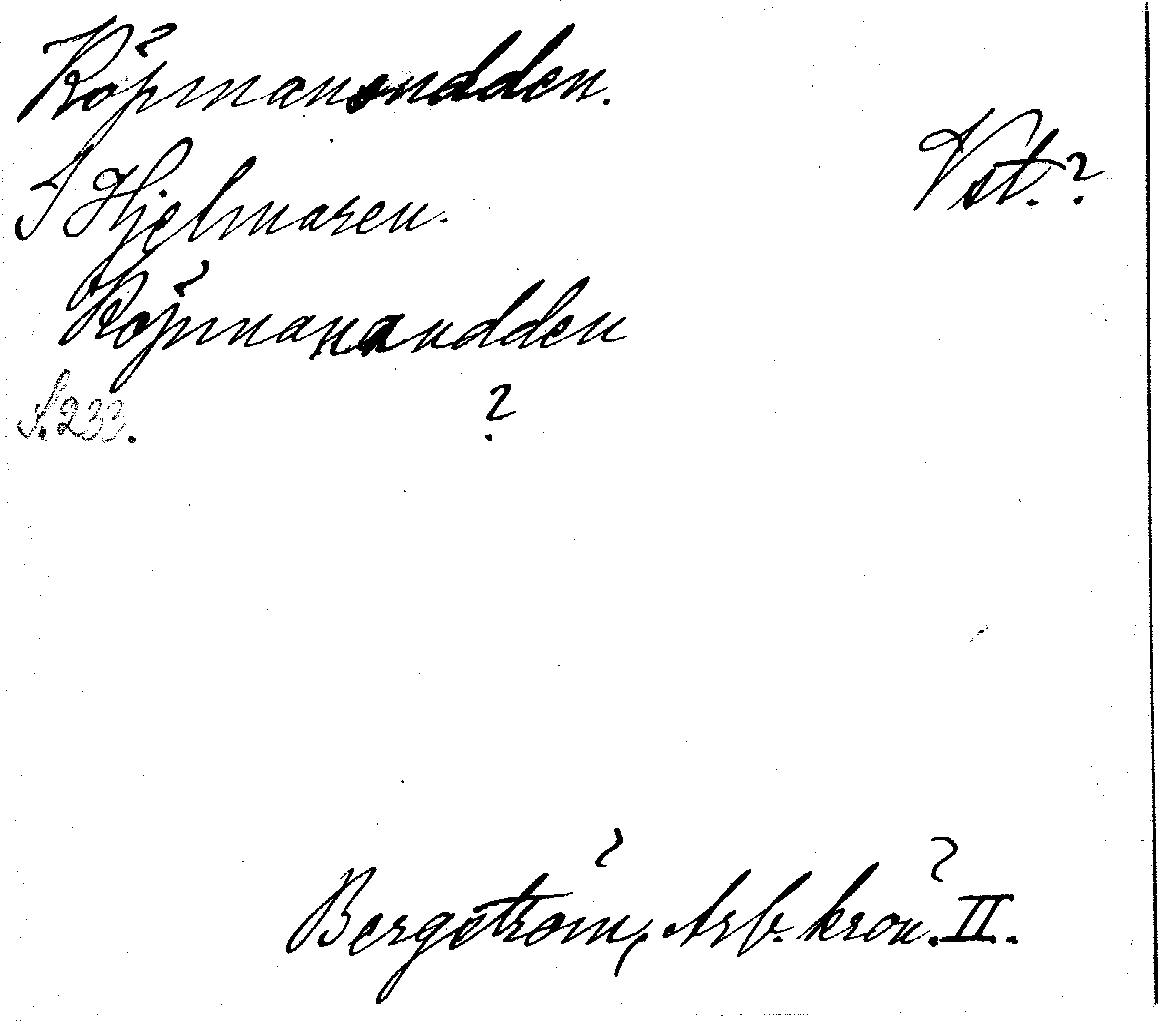 Köpmanudden.
I Hjelmaren.
Vst.?
Köpmanaudden
S. 233. ?
Bergström, Arb. krön. II.